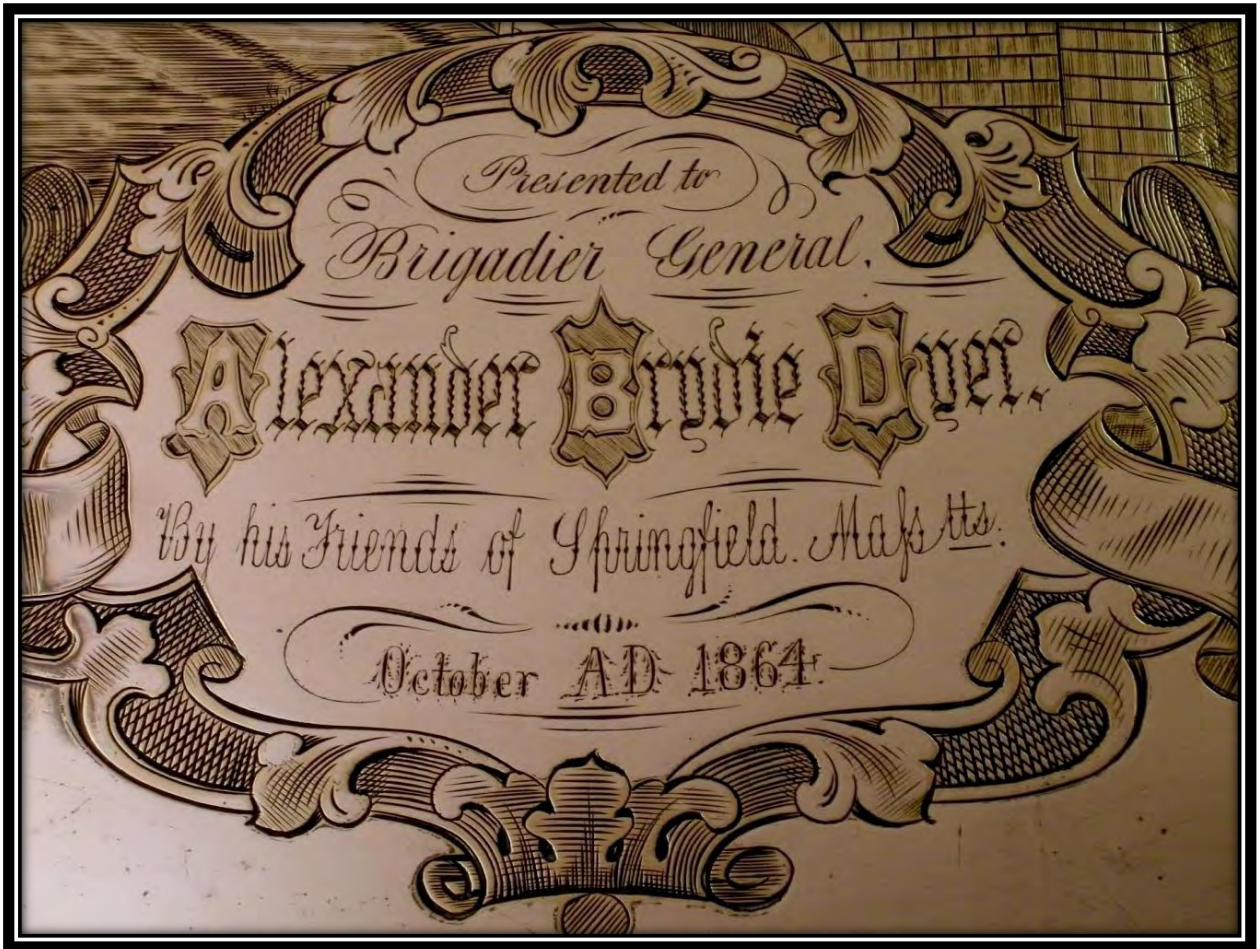 Presented to
Brigadier General.
Alexander Brydie Dyer.
By his Friends of Springfield. Maſstts:
October AD 1864